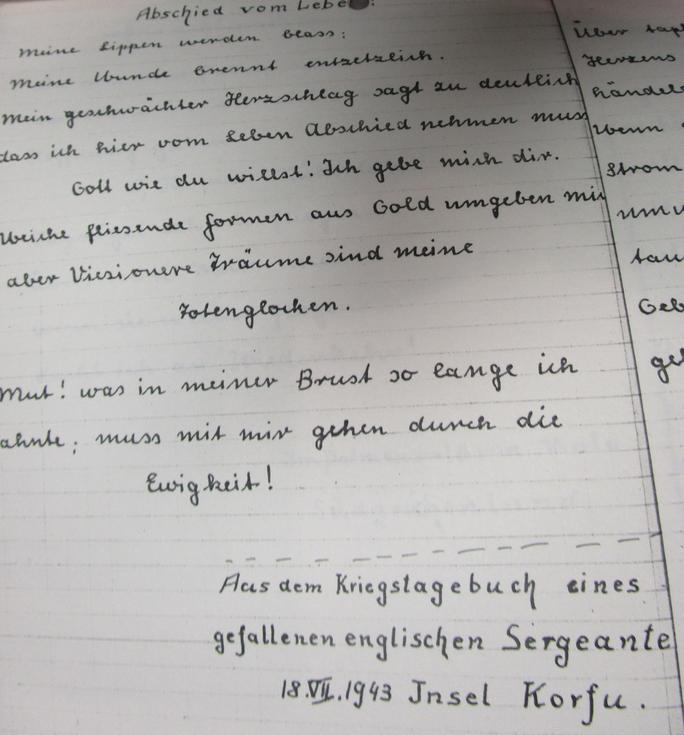 Abschied vom Leben:
Meine Lippen werden blass:
Meine Wunde brennt entzetzlich.
Mein geschwächter Herzschlag sagt zu deutlich
dass ich hier vom Leben Abschied nehmen muss
Gott wie du willst! Ich gebe mich dir.
Weiche fliesende formen aus Gold umgeben mir
aber Viesionere Träume sind meine
Totenglocken.
Mut! was in meiner Brust so lange ich
ahnte; muss mit mir gehen durch die
Ewigkeit!
Aus dem Kriegstagebuch eines
gefallenen englischen Sergeante
18.VII.1943 Insel Korfu.
Über
Herzens
händel
Wenn
Strom
um
tau
Geb
ge